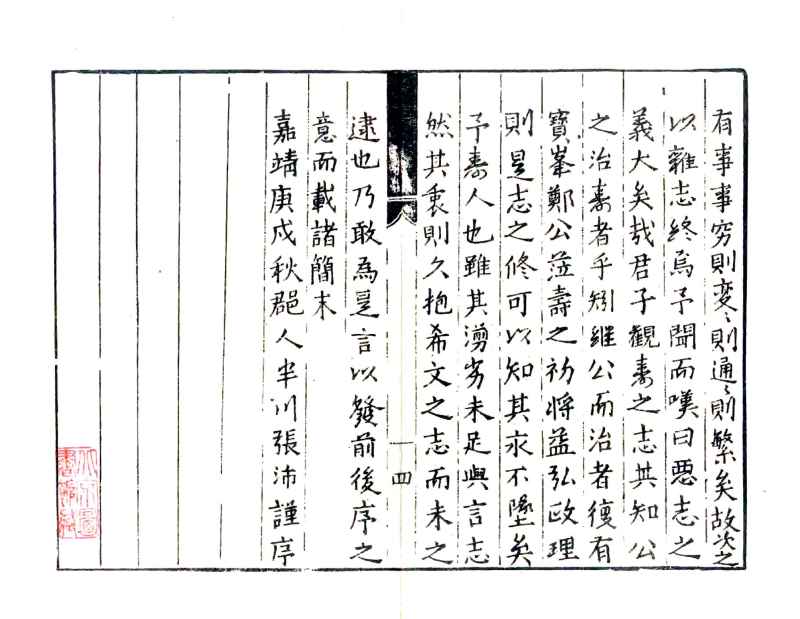 有事事穷則变〻則通〻則繁矣故次之
以雜志終焉予聞而嘆曰悪志之
義大矣㢤君子觀壽之志其知公
之治壽者乎矧継公而治者復有
寳峯鄭公蒞壽之初将益弘政理
則是志之修可以知其永不墜矣
予壽人也雖其謭劣未足與言志
然其衷則久抱希文之志而未之
逮也乃敢為是言以發前後序之
意而載諸簡末
嘉靖庚戌秋郡人半川張沛謹序
十四
北京圖
書館藏